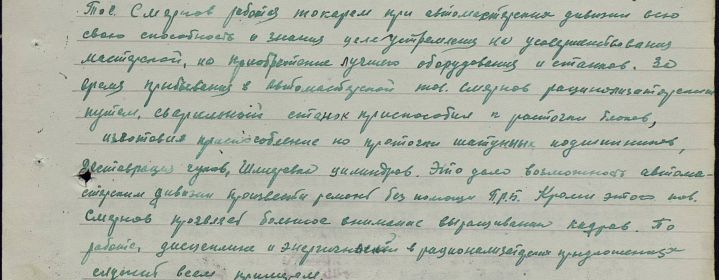 Тов. Смирнов работая токарем при автомастерских дивизии всю
свою способность и знания целеустремлял на усовершенствования
мастерской, на приобретение лучшего оборудования и станков. За
время прибывания в автомастерской тов. Смирнов рационализаторским
путем, сверлильный станок приспособил к расточки блоков,
изготовил приспособление по проточки шатунных подшипников,
реставрация сухов, шлифовка цилиндров. Это дало возможность автома-
стерским дивизии произвести ремонт без помощи П.Р.Б. Кроме этого тов.
Смирнов проявляет большое внимание выращиванию кадров. По
работе, дисциплине и в рационализаторских предложениях
служит всем примером.